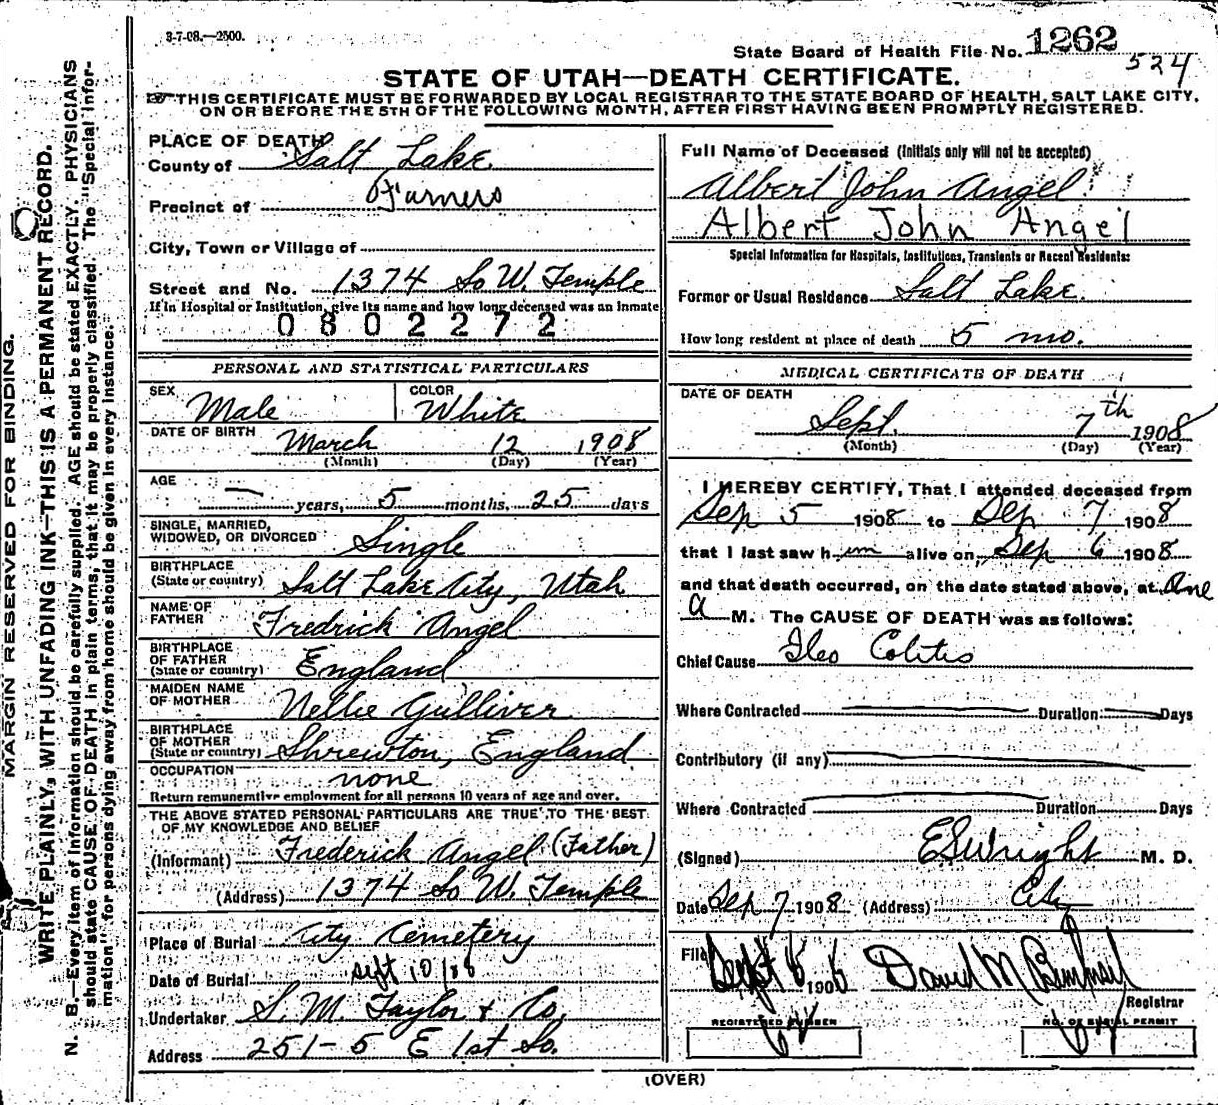 8-7-08.—2500.
State Board of Health File No. 1262
524
STATE OF UTAH—DEATH CERTIFICATE.
THIS CERTIFICATE MUST BE FORWARDED BY LOCAL REGISTRAR TO THE STATE BOARD OF HEALTH, SALT LAKE CITY,
ON OR BEFORE THE 5TH OF THE FOLLOWING MONTH, AFTER FIRST HAVING BEEN PROMPTLY REGISTERED.
MARGIN RESERVED FOR BINDING.
WRITE PLAINLY, WITH UNFADING INK—THIS IS A PERMANENT RECORD.
N. B.—Every item of information should be carefully supplied. AGE should be stated EXACTLY. PHYSICIANS
should state CAUSE OF DEATH in plain terms, that it may be properly classified. The "Special Infor-
mation" for persons dying away from home should be given in every instance.
PLACE OF DEATH
County of Salt Lake
Precinct of Farmers
City, Town or Village of
Street and No. 1374 So W. Temple
If in Hospital or Institution, give its name and how long deceased was an inmate
0802272
PERSONAL AND STATISTICAL PARTICULARS
SEX Male COLOR White
DATE OF BIRTH March 12 1908
(Month) (Day) (Year)
AGE — years, 5 months, 25 days
SINGLE, MARRIED,
WIDOWED, OR DIVORCED Single
BIRTHPLACE
(State or country) Salt Lake City, Utah
NAME OF
FATHER Fredrick Angel
BIRTHPLACE
OF FATHER
(State or country) England
MAIDEN NAME
OF MOTHER Nellie Gulliver
BIRTHPLACE
OF MOTHER
(State or country) Shrewton, England
OCCUPATION none
Return remunerative employment for all persons 10 years of age and over.
THE ABOVE STATED PERSONAL PARTICULARS ARE TRUE TO THE BEST
OF MY KNOWLEDGE AND BELIEF
(Informant) Frederick Angel (Father)
(Address) 1374 So W. Temple
Place of Burial City Cemetery
Date of Burial Sept 10/08
Undertaker S. M. Taylor & Co.
Address 251-5 E 1st So.
Full Name of Deceased (Initials only will not be accepted)
Albert John Angel
Albert John Angel
Special Information for Hospitals, Institutions, Transients or Recent Residents:
Former or Usual Residence Salt Lake.
How long resident at place of death 5 mo.
MEDICAL CERTIFICATE OF DEATH
DATE OF DEATH
Sept. 7th 1908
(Month) (Day) (Year)
I HEREBY CERTIFY, That I attended deceased from
Sep 5 1908 to Sep 7 1908
that I last saw h im alive on Sep 6 1908
and that death occurred, on the date stated above, at One
a M. The CAUSE OF DEATH was as follows:
Chief Cause Ileo Colitis
Where Contracted Duration Days
Contributory (if any)
Where Contracted Duration Days
(Signed) E S Wright M. D.
Date Sep 7 1908 (Address) City
Filed Sept 1908 David M
Registrar
REGISTERED NUMBER NO. OF BURIAL PERMIT
(OVER)